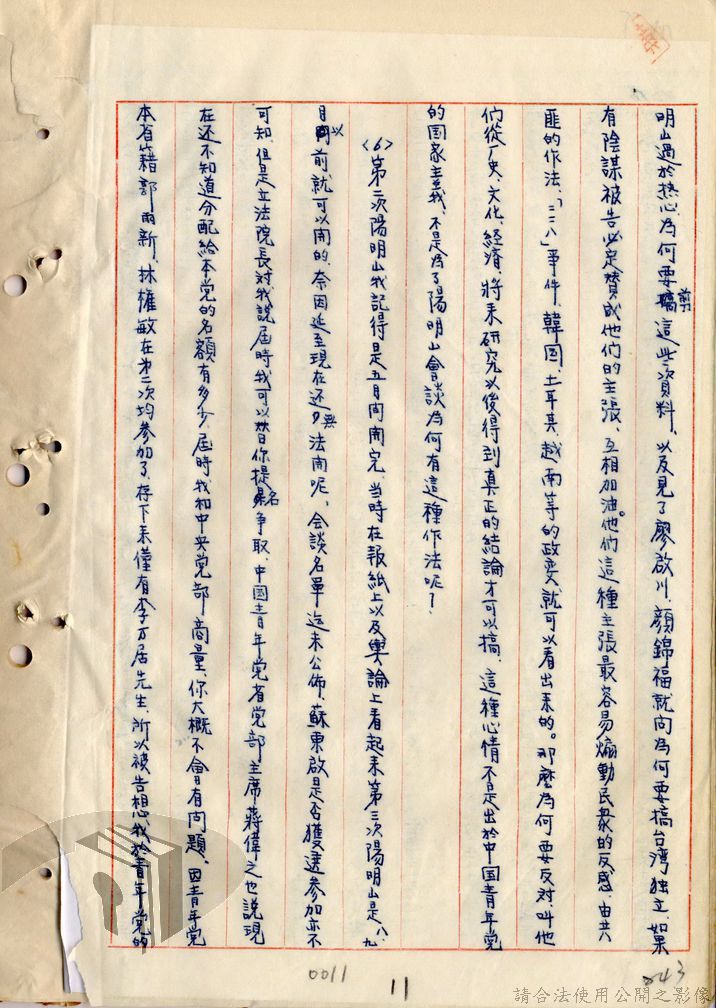 明山過於热心為何要剪這些資料、以及見了廖啟川、顏錦福就问為何要搞台湾獨立、如果
有陰謀被告必定賛成他们的主張、互相加油。他们這種主張最容易煽動民衆的反感、由共
匪的作法、「二二八」事件、韓囯、土耳其、越南等的政变、就可以看出耒的。那麽為何要反対叫他
们從厂史、文化、経濟、將耒研究以後得到真正的結論才可以搞、這種心情不是出於中国青年党
的国家主義、不是為了陽明山會談為何有這種作法呢？
〈6〉第二次陽明山我記得是五月间開完、当時在报紙上以及輿論上看起耒第三次陽明山是八、九
月以前、就可以開的、奈因延至現在还無法開呢、会談名單迄未公佈、蘇東啟是否獲選参加亦不
可知、但是立法院長対我說屆時我可以替你提名争取、中国青年党省党部主席蔣偉之也說現
在还不知道分配給本党的名額有多少、屆時我和中央党部商量、你大概不會有问題、因青年党
本省籍郭雨新、林權敏在第二次均参加了、存下耒僅有李万居先生、所以被告想、我於青年党的
0011
11
243
請合法使用公開之影像